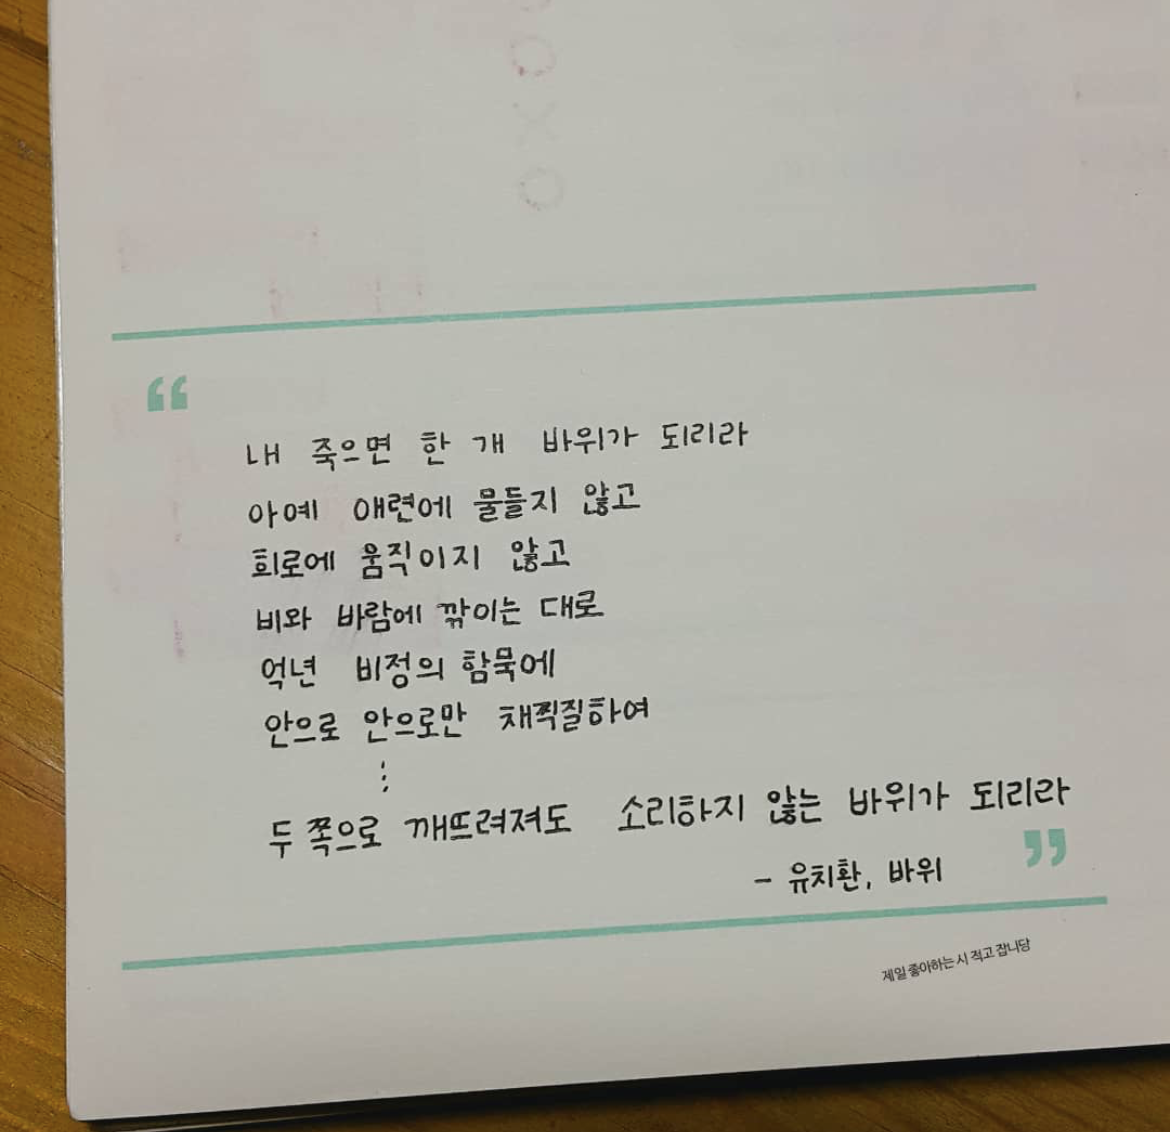 “
내 죽으면 한 개 바위가 되리라
아예 애련에 물들지 않고
희로에 움직이지 않고
비와 바람에 깎이는 대로
억년 비정의 함묵에
안으로 안으로만 채찍질하여
⋮
두 쪽으로 깨뜨려져도 소리하지 않는 바위가 되리라
”
- 유치환, 바위
제일 좋아하는 시 적고 잡니당